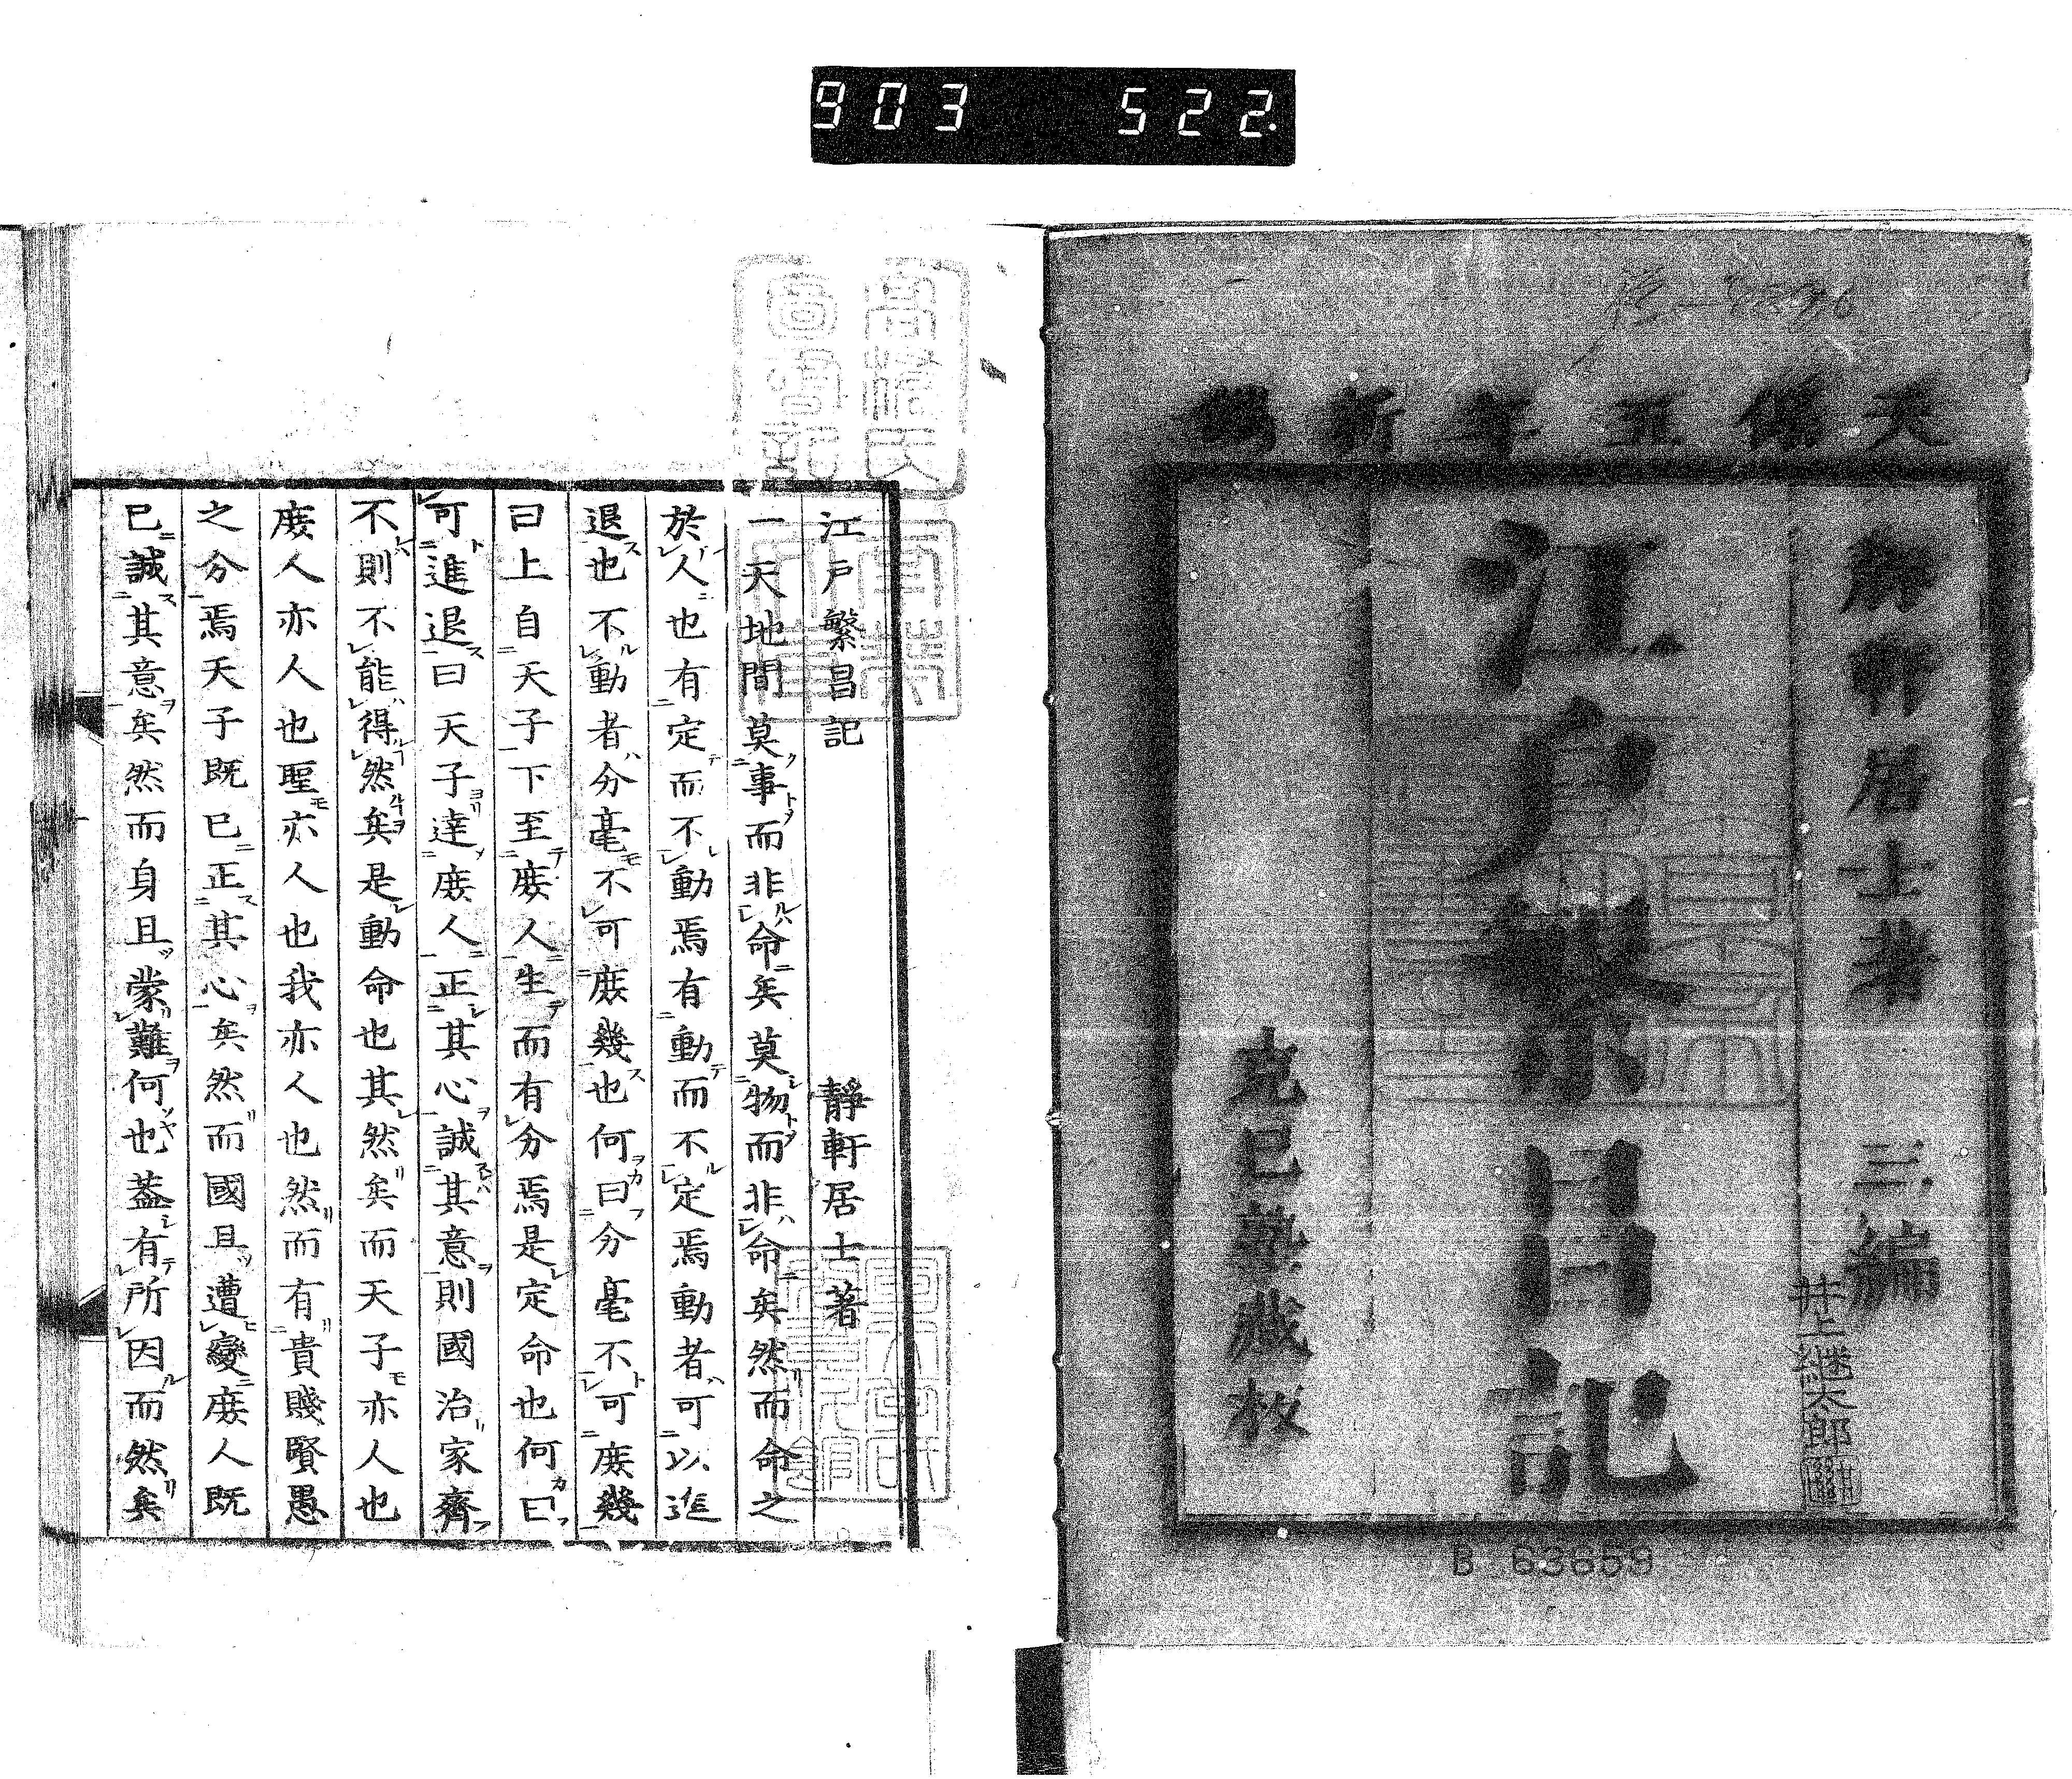 903 522.
天保五年新鐫
靜軒居士著 三編
江戶繁昌記
克己塾藏板
井上継太郎
B 63659
江戶繁昌記 靜軒居士著
一天地間莫事而非命矣莫物而非命矣然而命之
於人也有定而不動焉有動而不定焉動者可以進
退也不動者分毫不可庶幾也何曰分毫不可庶幾
曰上自天子下至庶人生而有分焉是定命也何曰
可進退曰天子達庶人正其心誠其意則國治家齊
不則不能得然矣是動命也其然矣而天子亦人也
庶人亦人也聖亦人也我亦人也然而有貴賤賢愚
之分焉天子既已正其心矣然而國且遭變庶人既
已誠其意矣然而身且蒙難何也蓋有所因而然矣